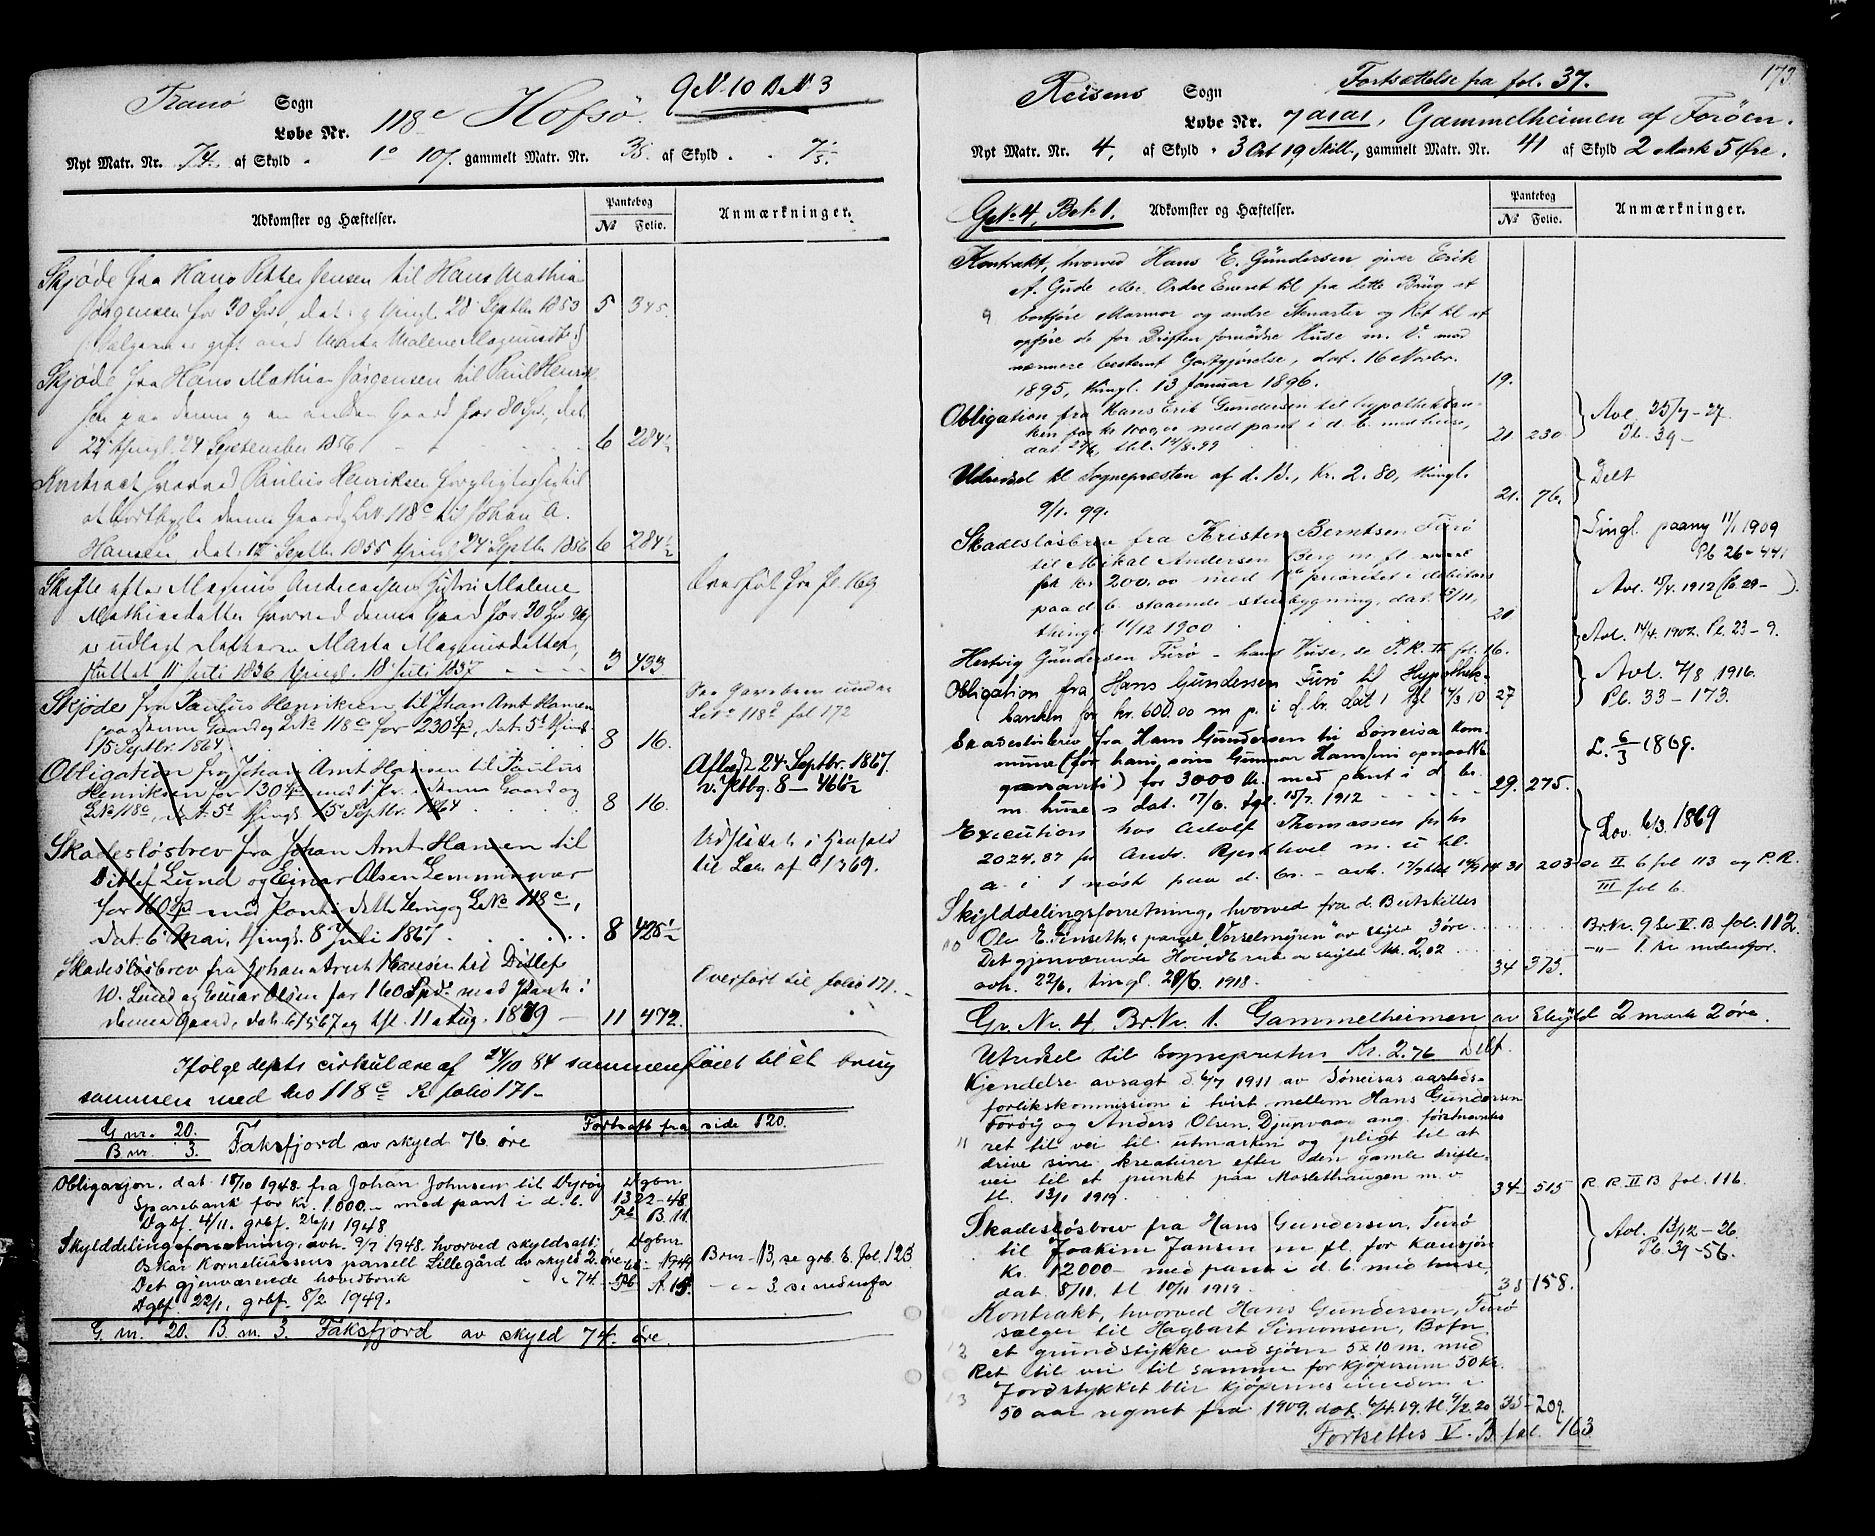 Tranö Sogn
GNr 10 BNr 3
Løbe Nr. 118c Hofsö.
Nyt Matr. Nr. 74. af Skyld . 1o 107. gammelt Matr. Nr. 38. af Skyld . .
Adkomster og Hæftelser.
Pantebog
No Folio.
Anmærkninger.
Skjöde fra Hans Petter Jensen til Hans Mathias
Jörgensen for 30 Spd, dat: og thingl. 28 Septbr 1853 5 345.
Skjøde fra Hans Mathias Jörgensen til Paul Henrik-
sen paa denne og en anden Gaard for 80 Spd, dat.
22 thingl. 24 September 1856 6 284½
Kontract hvorved Paulus Henriksen forpligter sig til
at bortbygle denne Gaard, LNr 118c til Johan A.
Hansen dat. 12 Septbr 1855 thingl. 24 Septbr 1856 6 284½
Skifte efter Magnus Andreassens Hustru Malene
Mathiasdatter hvorved denne Gaard for 20 Spd
er udlagt Datteren Marta Magnusdatter,
sluttet 11 Juli 1836 thingl. 18 Juli 1837 3 433
Overført fra fol 169
Skjøde fra Paulus Henriksen til Johan Arnt Hansen
paa denne Gaard og LNo 118c for 230 Sp, dat. 5t thingl.
15 Septbr. 1864 8 16.
LNo 118d fol 172
Obligation fra Johan Arnt Hansen til Paulus
Henriksen for 130 Sp med 1 Pr. i denne Gaard og
LNo 118c, dat. 5t thingl. 15 Septbr. 1864 8 16.
Aflæst 24 Septbr. 1867.
v. Ptbg. 8 — 466½
Skadesløsbrev fra Johan Arnt Hansen til
Ditlef Lund og Einar Olsen Lemmingvær
for 160 Sp med Pant i dette Brug og LNo 118c,
dat. 6 Mai, thingl. 8 Juli 1867. 8 425½
Udslettet i Henhold
til Lov af 6/3 69.
Skadesløsbrev fra Johan Arnt Hansen til Ditlef
W. Lund og Einar Olsen for 160 Spd. med Pant i
denne Gaard, dat. 6/5 67 og tlst. 11 Aug. 1879 11 472.
Overført til folio 171.
Ifølge depts cirkulære af 24/10 84 sammenføiet til et brug
sammen med No 118c Se folio 171.
G nr. 20.
B nr. 3. Faksfjord av skyld 76 øre
Fortsatt fra side 120.
Obligasjon, dat. 18/10 1948 fra Johan Johnsen til Dyrøy
Sparebank for kr. 1.000.- med pant i d. b.
Dgbf. 4/11. grbf. 26/11 1948
Dgbnr
1322-48
Pb B. 11.
Skylddelingsforretning, avh. 9/7 1948. hvorved skyldsatt:
Oskar Korneliussens parsell Lillegård av skyld 2. øre
Det gjenværende hovedbruk " - " 74. -
Dgbf. 22/1, grbf. 8/2 1949.
Dgbnr
1949
Pb A. 15.
Bnr - 13, se grb. 6. fol. 123
- " - 3 se nedenfor
G. nr. 20. B. nr. 3. Faksfjord av skyld 74. øre.
173.
Fortsættelse fra fol. 37.
Reisens Sogn
Løbe Nr. 7 a1 a1, Gammelheimen af Forøen.
Nyt Matr. Nr. 4, af Skyld . 3 Ort 19 Skill., gammelt Matr. Nr. 41 af Skyld 2 Mark 5 Øre.
GNo 4, BNo 1.
Adkomster og Hæftelser.
Pantebog
No Folio.
Anmærkninger.
Kontrakt, hvorved Hans E. Gundersen giver Erik
A. Gude eller Ordre Eneret til fra dette Brug at
9 bortføre Marmor og andre Stenarter og Ret til at
opføre de for Driften fornødne Huse m. V. mod
nærmere bestemt Godtgjørelse, dat. 16 Novbr.
1895, thingl. 13 Januar 1896. 19.
Obligation fra Hans Erik Gundersen til Hypothekban-
ken for kr 1000,00 med pant i d. b. med huse,
dat 27/6, thl. 14/8.99 21 230
Avl. 25/7 - 27.
Pb. 39 -
Udredsel til Sognepresten af d. B., Kr. 2.80, thingl.
9/1. 99. 21. 76.
Delt
Skadesløsbrev fra Kristen Berntsen Furö
til Mikal Andersen Berg m. fl.
for kr. 200.00 med 1ste prioritet i debitors
paa d. b. staaende stuebygning, dat. 8/11,
thingl. 11/12 1900 20
Tingl. paany 11/1 1909
Pb 26 - 441
Avl. 15/4. 1912 (Pb. 29 - ).
Avl. 14/4. 1902. Pb. 23 - 9.
Hertvig Gundersen Furö - hans Huse, se P. R. III fol. 16.
Obligation fra Hans Gundersen Furö til Hypothek-
banken for kr. 600.00 m p. i d. br. dat 1 tgl 17/3 10 27
Avl. 7/8 1916.
Pb. 33 - 173.
Skadesløsbrev fra Hans Gundersen til Sørreisa kom-
mune (for ham, som Gunnar Hansens opnaadde
garanti) for 3000 kr. med pant i d br.
m. huse s dat. 17/6. tgl. 15/7. 1912 29. 275.
L. 6/3 1869.
Execution hos Adolf Thomassen for kr
2024.87 for Andr. Rjeskhvel m. u tl.
a. i 1 nøst paa d. br. - avh. 31 203
Lov. 6/3. 1869
se II 6 fol 113 og P. R.
III fol 6.
Skylddelingsforretning, hvorved fra d Br utskilles
10 Olv E. Enseth's parsel "Vasselmyren" av skyld 3 øre
Det gjenværende Hovedbruk av skyld Mk. 2,02
avh. 22/6, tingl. 29/6. 1918. 34 375.
BrNr. 9 Se V. B. fol. 112.
- " - 1 se nedenfor.
Gr. Nr. 4. BrNr. 1. Gammelheimen av Skyld 2 mark 2 øre.
Utredsel til Sognepresten Kr. 2.76 Delt.
Kjendelse avsagt d. 6/7 1911 av Sørreisas aasteds-
forlikskommission i tvist mellem Hans Gundersen
Forøig og Anders Olsen, Djupvaag ang. förstnævntes
11 ret til vei til utmarken og pligt til at
drive sine kreaturer efter den gamle drifte-
vei til et punkt paa Moslethaugen m. v
tl. 13/1 1919. 34 515
P. R. II B fol. 116.
Skadesløsbrev fra Hans Gundersen, Furö
til Joakim Jansen m fl. for kausjon
Kr. 12000 - med pant i d. b. med huse,
dat. 8/11. tl 10/11 1919. 35 158.
Avl. 13/12 - 26.
Pb. 39 - 56.
Kontrakt, hvorved Hans Gundersen, Furö
sælger til Hagbart Simonsen, Botn
12 et grundstykke ved sjøen 5 x 10 m. med
Ret til vei til samme for kjøpesum 50 Kr.
13 Jordstykket blir kjøperens eiendom i
50 aar regnet fra 1909. dat. 6/4.19. tl 9/2.20 35 209.
Fortsettes V. B. fol. 163